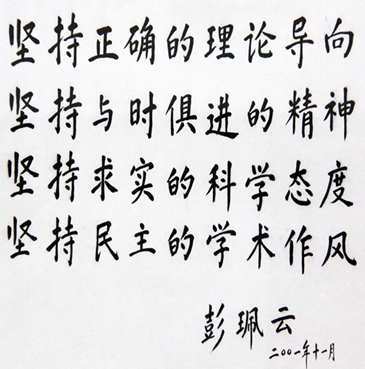 坚持正确的理论导向
坚持与时俱进的精神
坚持求实的科学态度
坚持民主的学术作风
彭珮云
二〇〇一年十一月